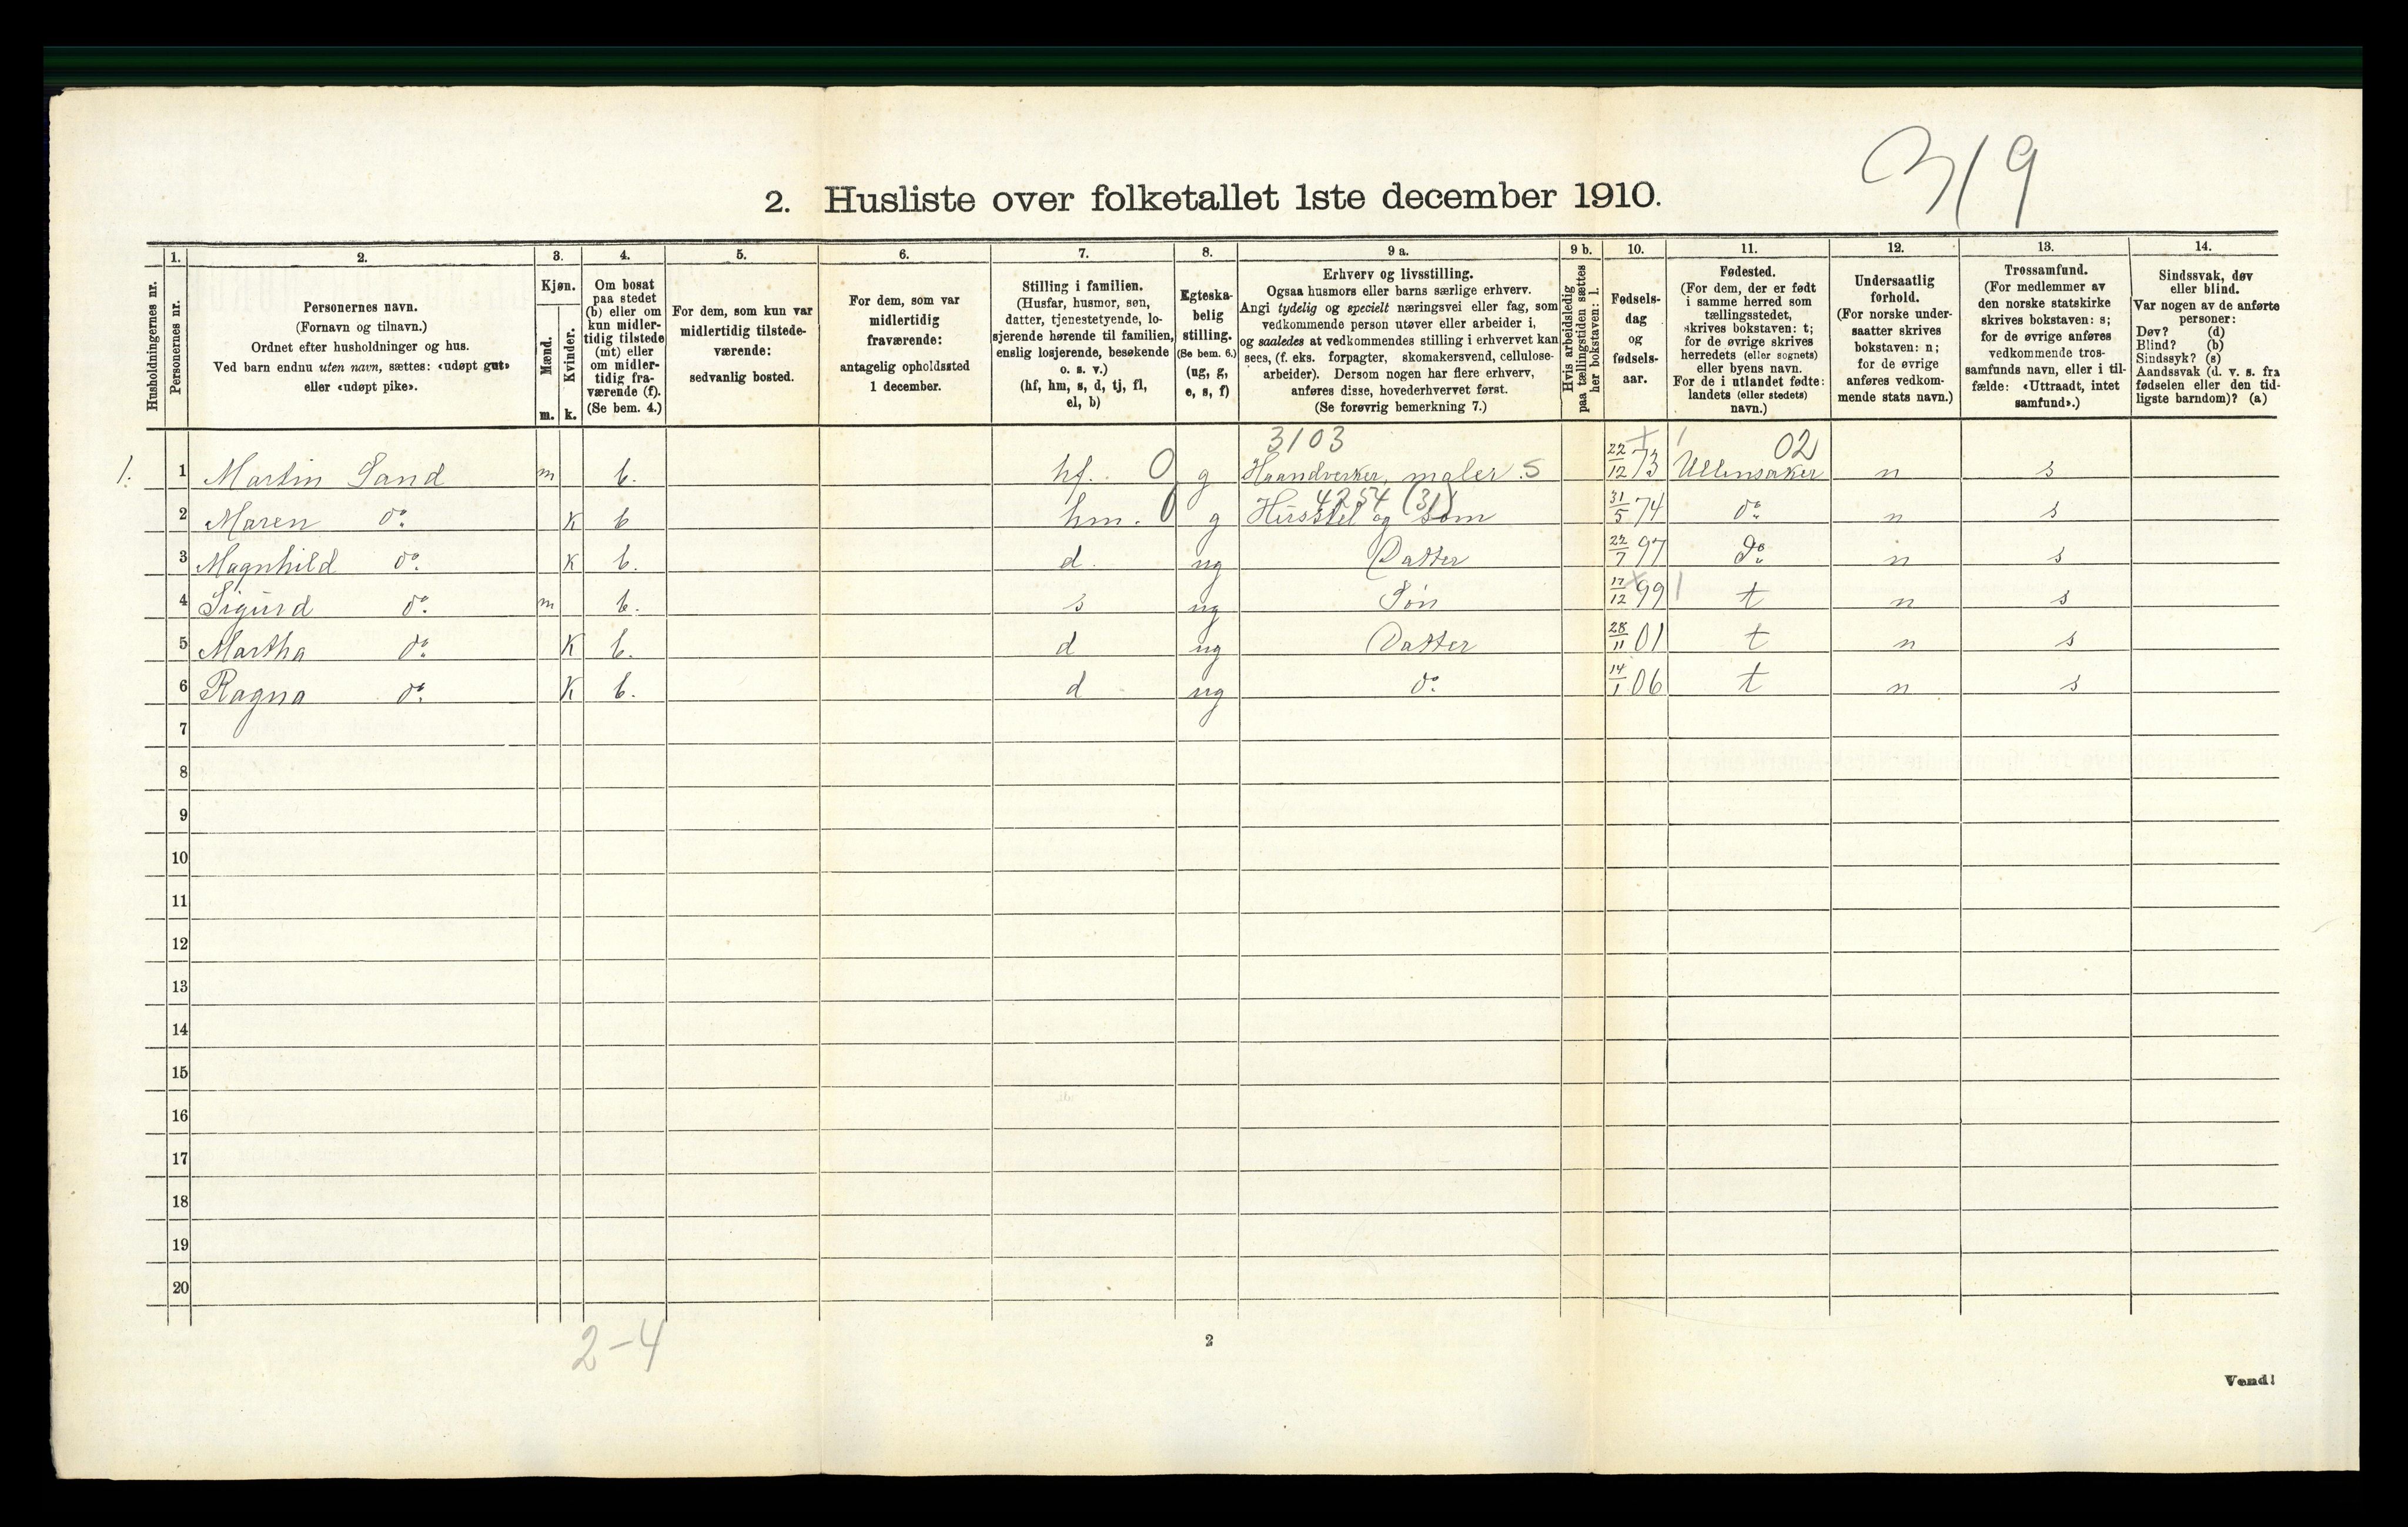 319
2. Husliste over folketallet 1ste december 1910.
Husholdningernes nr.
1.
Personernes nr.
2.
Personernes navn.
(Fornavn og tilnavn.)
Ordnet efter husholdninger og hus.
Ved barn endnu uten navn, sættes: «udøpt gut»
eller «udøpt pike».
3.
Kjøn.
Mænd.
m.
Kvinder.
k.
4.
Om bosat
paa stedet
(b) eller om
kun midler-
tidig tilstede
(mt) eller
om midler-
tidig fra-
værende (f).
(Se bem. 4.)
5.
For dem, som kun var
midlertidig tilstede-
værende:
sedvanlig bosted.
6.
For dem, som var
midlertidig
fraværende:
antagelig opholdssted
1 december.
7.
Stilling i familien.
(Husfar, husmor, søn,
datter, tjenestetyende, lo-
sjerende hørende til familien,
enslig losjerende, besøkende
o. s. v.)
(hf, hm, s, d, tj, fl,
el, b)
8.
Egteska-
belig
stilling.
(Se bem. 6.)
(ug, g,
e, s, f)
9 a.
Erhverv og livsstilling.
Ogsaa husmors eller barns særlige erhverv.
Angi tydelig og specielt næringsvei eller fag, som
vedkommende person utøver eller arbeider i,
og saaledes at vedkommendes stilling i erhvervet kan
sees, (f. eks. forpagter, skomakersvend, cellulose-
arbeider). Dersom nogen har flere erhverv,
anføres disse, hovederhvervet først.
(Se forøvrig bemerkning 7.)
9 b.
Hvis arbeidsledig
paa tællingstiden sættes
her bokstaven: l.
10.
Fødsels-
dag
og
fødsels-
aar.
11.
Fødested.
(For dem, der er født
i samme herred som
tællingsstedet,
skrives bokstaven: t;
for de øvrige skrives
herredets (eller sognets)
eller byens navn.
For de i utlandet fødte:
landets (eller stedets)
navn.)
12.
Undersaatlig
forhold.
(For norske under-
saatter skrives
bokstaven: n;
for de øvrige
anføres vedkom-
mende stats navn.)
13.
Trossamfund.
(For medlemmer av
den norske statskirke
skrives bokstaven: s;
for de øvrige anføres
vedkommende tros-
samfunds navn, eller i til-
fælde: «Uttraadt, intet
samfund».)
14.
Sindssvak, døv
eller blind.
Var nogen av de anførte
personer:
Døv? (d)
Blind? (b)
Sindssyk? (s)
Aandssvak (d. v. s. fra
fødselen eller den tid-
ligste barndom)? (a)
3103 02
1. 1 Martin Sand m b. hf. 0 g Haandverker, maler. 5 22/12 73 Ullensaker n s
4254 (31)
2 Maren do. K b hm. 0 g Husstel og søm 31/5 74 do. n s
3 Magnhild do. K b. d. ug Datter 22/7 97 do. n s
4 Sigurd do. m b. s ug Søn 17/12 99 t n s
5 Martha do. K b. d ug Datter 28/11 01 t n s
6 Ragna do. K b. d ug do. 14/1 06 t n s
7
8
9
10
11
12
13
14
15
16
17
18
19
20
2-4
2
Vend!